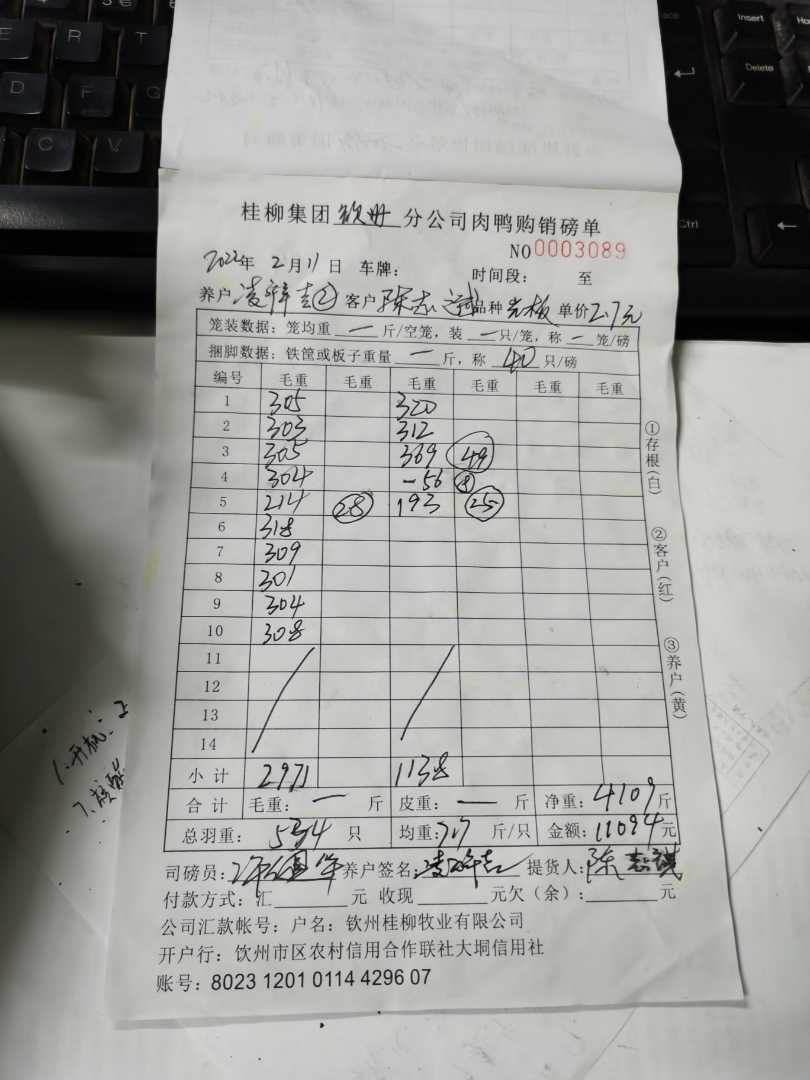 桂柳集团 钦州 分公司肉鸭购销磅单
NO 0003089
2022年 2月11日 车牌： 时间段： 至
养户 凌辞吉② 客户 陈志 品种 光板 单价2.7元
笼装数据：笼均重 一 斤/空笼，装 一 只/笼，称 一 笼/磅
捆脚数据：铁筐或板子重量 一 斤，称 40 只/磅
编号 毛重 毛重 毛重 毛重 毛重 毛重
1 305 320
2 303 312
3 305 369 49
4 304 -56 8
5 214 28 193 25
6 318
7 309
8 301
9 304
10 308
11
12
13
14
小计 2971 1138
合计 毛重：一 斤 皮重：一 斤 净重：4109斤
总羽重：534 只 均重：7.7 斤/只 金额：11094元
司磅员： 养户签名： 提货人：陈志
付款方式：汇 元 收现 元欠（余）： 元
公司汇款帐号：户名：钦州桂柳牧业有限公司
开户行：钦州市区农村信用合作联社大垌信用社
账号：8023 1201 0114 4296 07
①存根（白）
②客户（红）
③养户（黄）
1.开机
Insert
Delete
Ctrl
E R T
D F G
C V